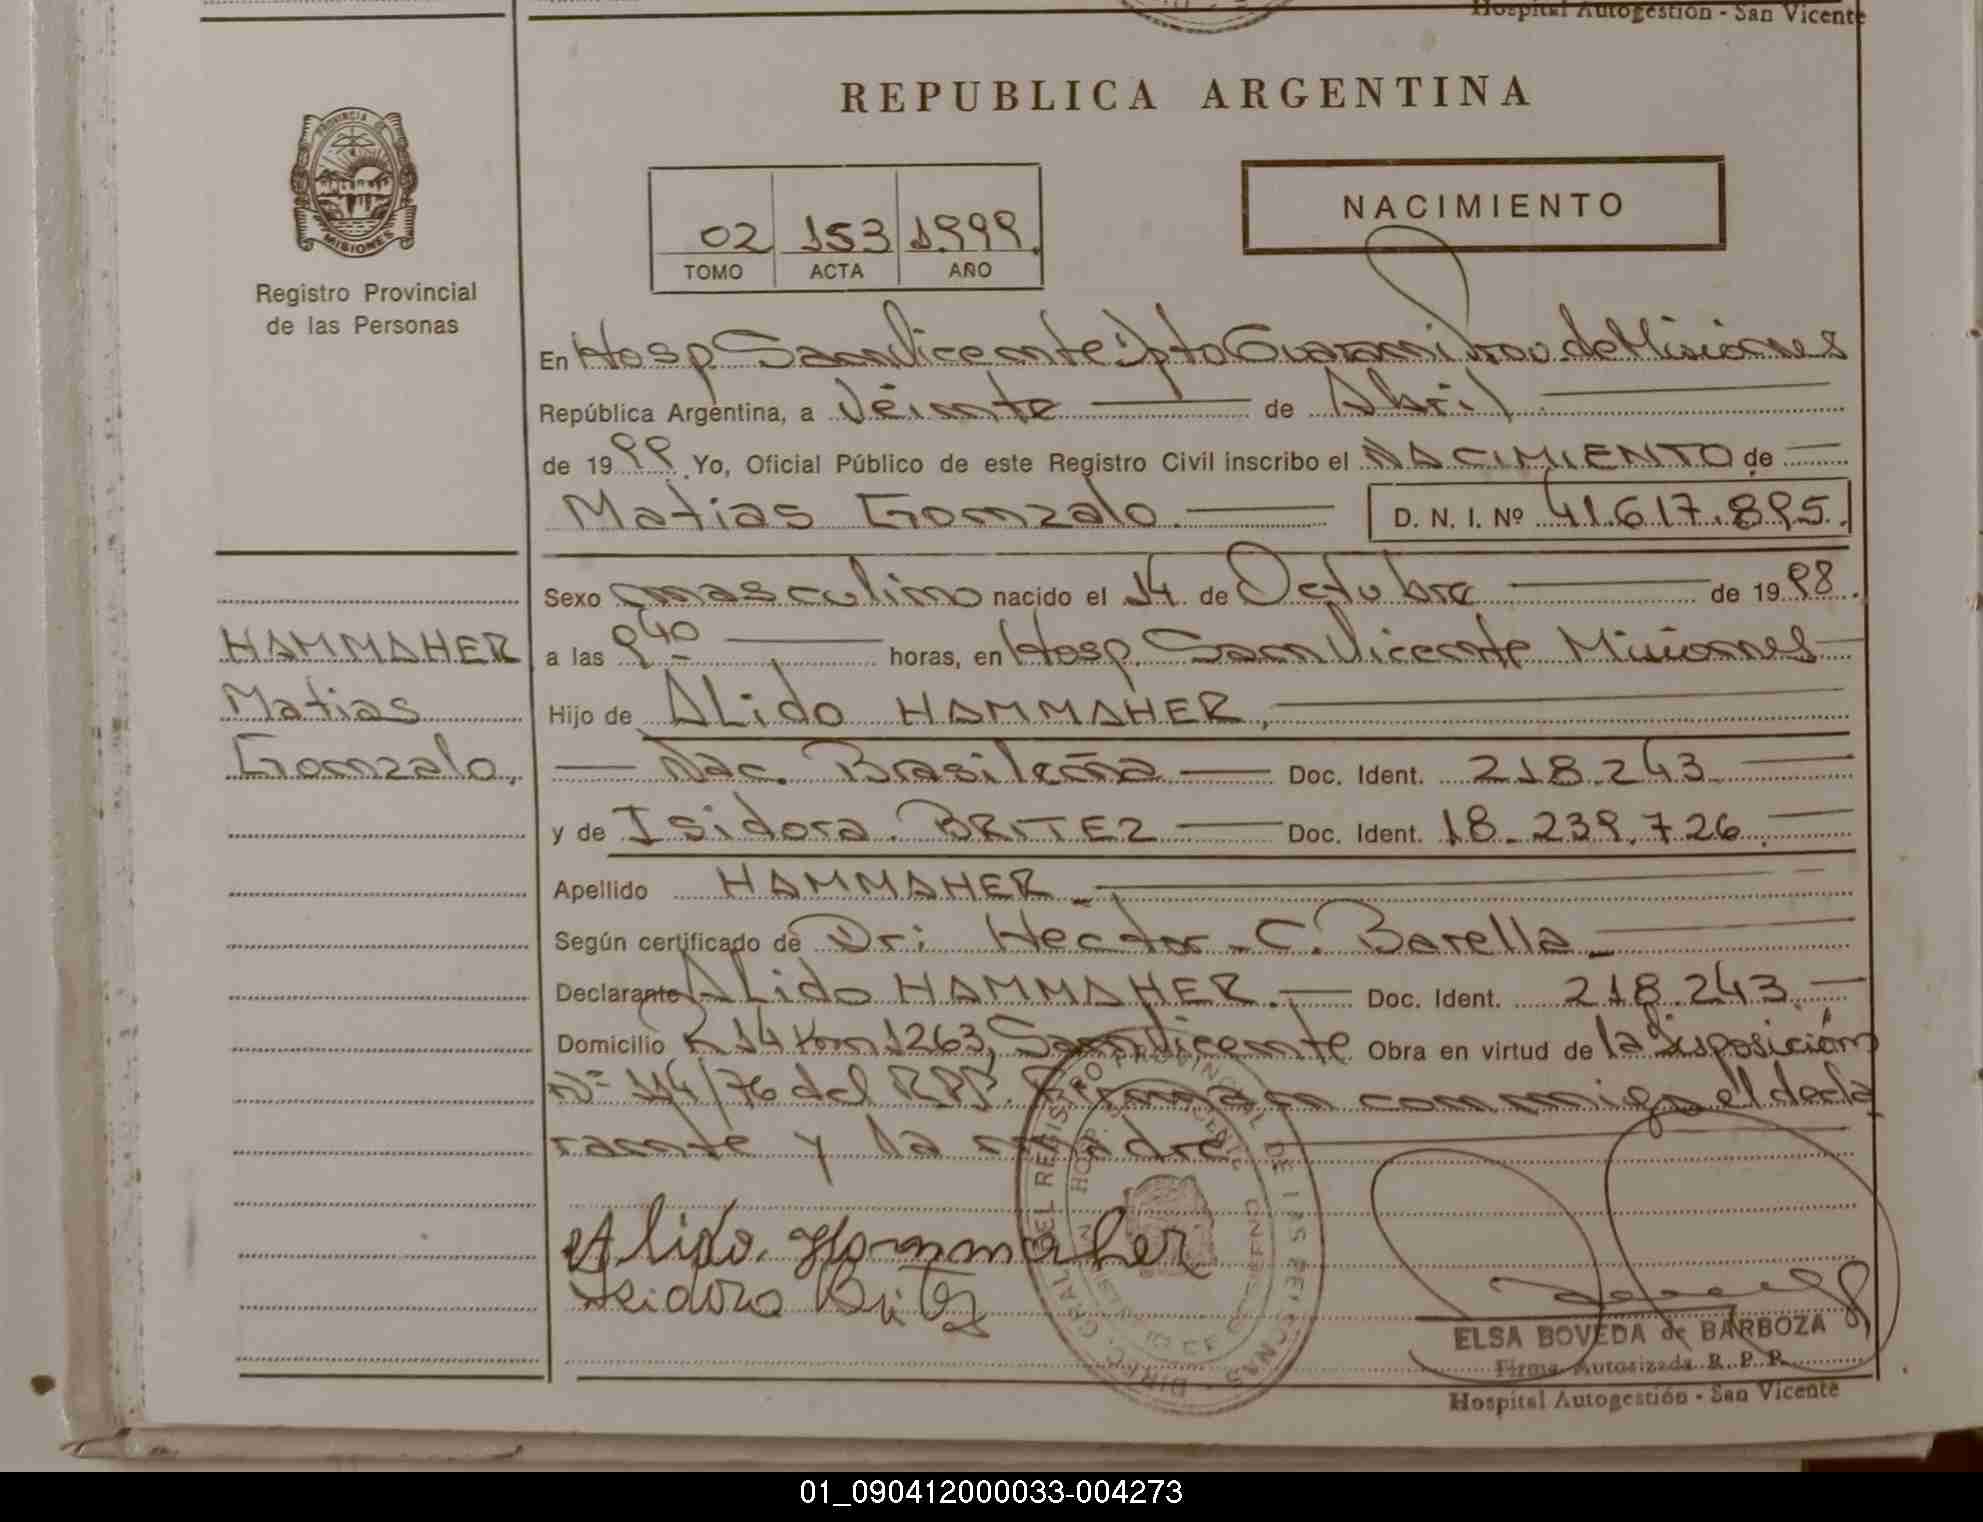 Hospital Autogestión - San Vicente
REPUBLICA ARGENTINA
PROVINCIA DE
MISIONES
Registro Provincial
de las Personas
02 153 1999.
TOMO ACTA AÑO
NACIMIENTO
En Hosp San Vicente Dpto Guarani Prov. de Misiones
República Argentina, a Veinte de Abril
de 1999 Yo, Oficial Público de este Registro Civil inscribo el NACIMIENTO de
Matias Gonzalo. D. N. I. Nº 41.617.895.
Sexo masculino nacido el 14 de Octubre de 1998.
HAMMAHER
Matias
Gonzalo.
a las 9 40 horas, en Hosp. San Vicente Misiones
Hijo de ALido HAMMAHER,
Nac. Brasileña Doc. Ident. 218.243
y de Isidora BRITEZ Doc. Ident. 18.239.726.
Apellido HAMMAHER.
Según certificado de Dr: Hector C. Barella
Declarante ALido HAMMAHER. Doc. Ident. 218.243.
Domicilio R 14 Km 1263, San Vicente Obra en virtud de la disposición
Nº 14/76 del RPP. Firman conmigo el decla
rante y la madre
Alido Hammaher
Isidora Britez
DIREC. GRAL. DEL REGISTRO PROVINCIAL DE LAS PERSONAS
ELSA BOVEDA de BARBOZA
Firma Autorizada R. P. P.
Hospital Autogestión - San Vicente
01_090412000033-004273